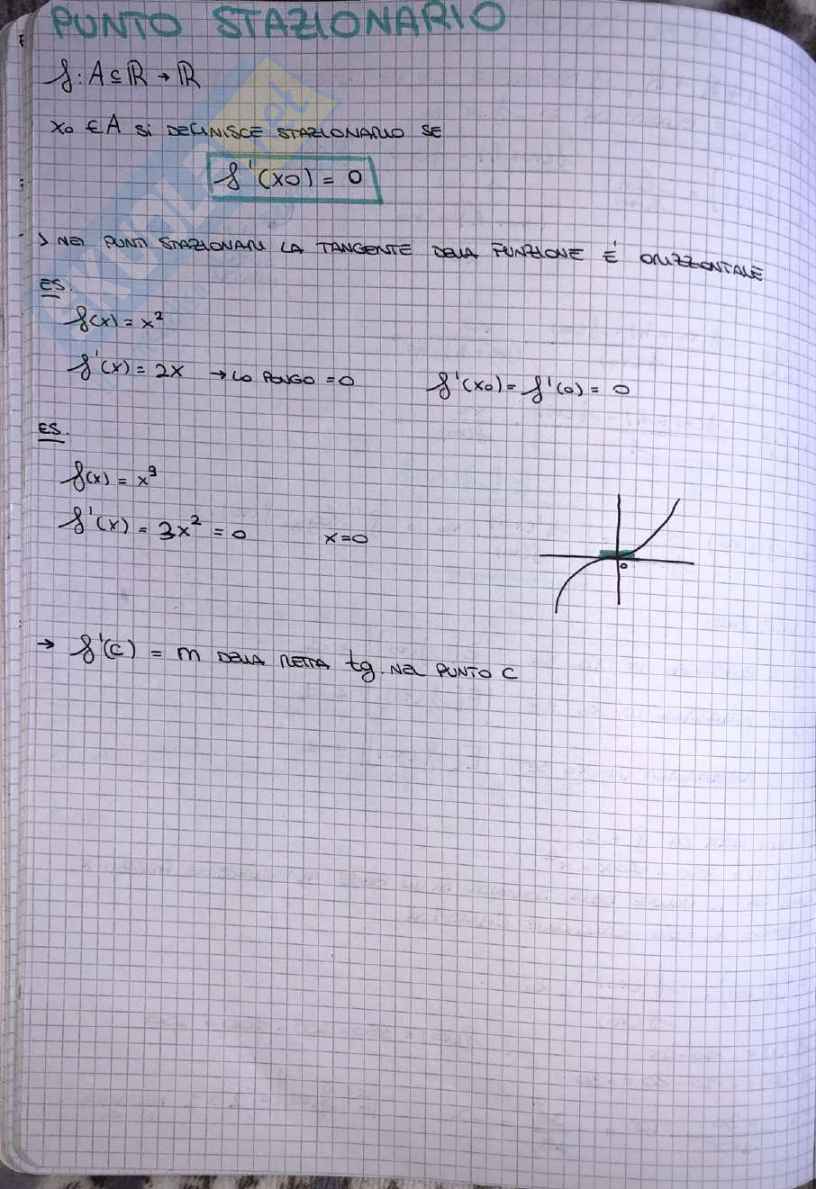 PUNTO STAZIONARIO
f : A ⊆ ℝ → ℝ
x₀ ∈ A SI DEFINISCE STAZIONARIO SE
f'(x₀) = 0
NEI PUNTI STAZIONARI LA TANGENTE DELLA FUNZIONE É ORIZZONTALE
ES.
f(x) = x²
f'(x) = 2x → LO PONGO = 0 f'(x₀) = f'(0) = 0
ES.
f(x) = x³
f'(x) = 3x² = 0 x = 0
0
→ f'(c) = m DELLA RETTA tg. NEL PUNTO C